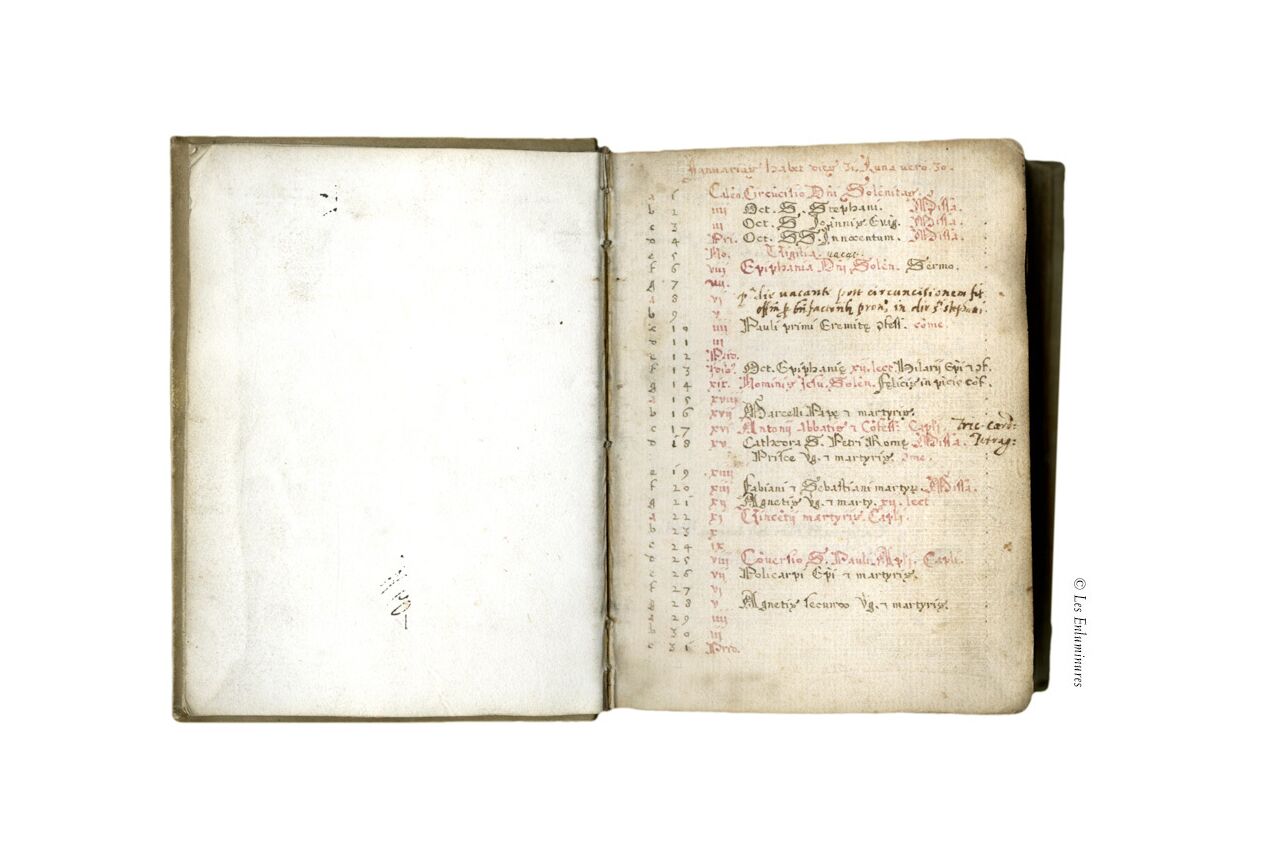 Januarius habet dies 31. Luna vero 30.
a 1 Calen. Circūcisio Dn̄i Solēnitas.
b 2 iiii Oct. S. Stephani. Missa.
c 3 iii Oct. S. Joannis Evāg. Missa.
d 4 Pri. Oct. SS. Innocentum. Missa.
e 5 No. Vigilia. vacat.
f 6 viii Epiphania Dn̄i, Solēn. Sermo.
g 7 vii.
a 8 vi die vacante post circuncitionem fit
b 9 v in die S. stephani.
c 10 iiii Pauli primi Eremitę cōme.
d 11 iii
e 12 Prid.
f 13 Idibꝰ. Oct. Epiphanię xii. lect. Hilarii Epī ⁊ ꝯf.
g 14 xix. Nominis Jesu, Solēn. Felicis in pīcis cōf.
a 15 xviii
b 16 xvii Marcelli Papę ⁊ martyris.
c 17 xvi Antonii abbatis ⁊ Cōfess. Capli.
d 18 xv Cathedra S. Petri Romę Missa.
Priscę Vg. ⁊ martyris.
e 19 xiiii
f 20 xiii Fabiani ⁊ Sebastiani martyrꝝ. Missa.
g 21 xii Agnetis Vg. ⁊ marty. xii. lect
a 22 xi Vincētii martyris. Capli.
b 23 x
c 24 ix
d 25 viii Cōversio S. Pauli, Apli. Capli.
e 26 vii Policarpi Epī ⁊ martyris.
f 27 vi
g 28 v Agnetis secundo Vg. ⁊ martyris.
a 29 iiii
b 30 iii
c 31 Prid.
© Les Enluminures